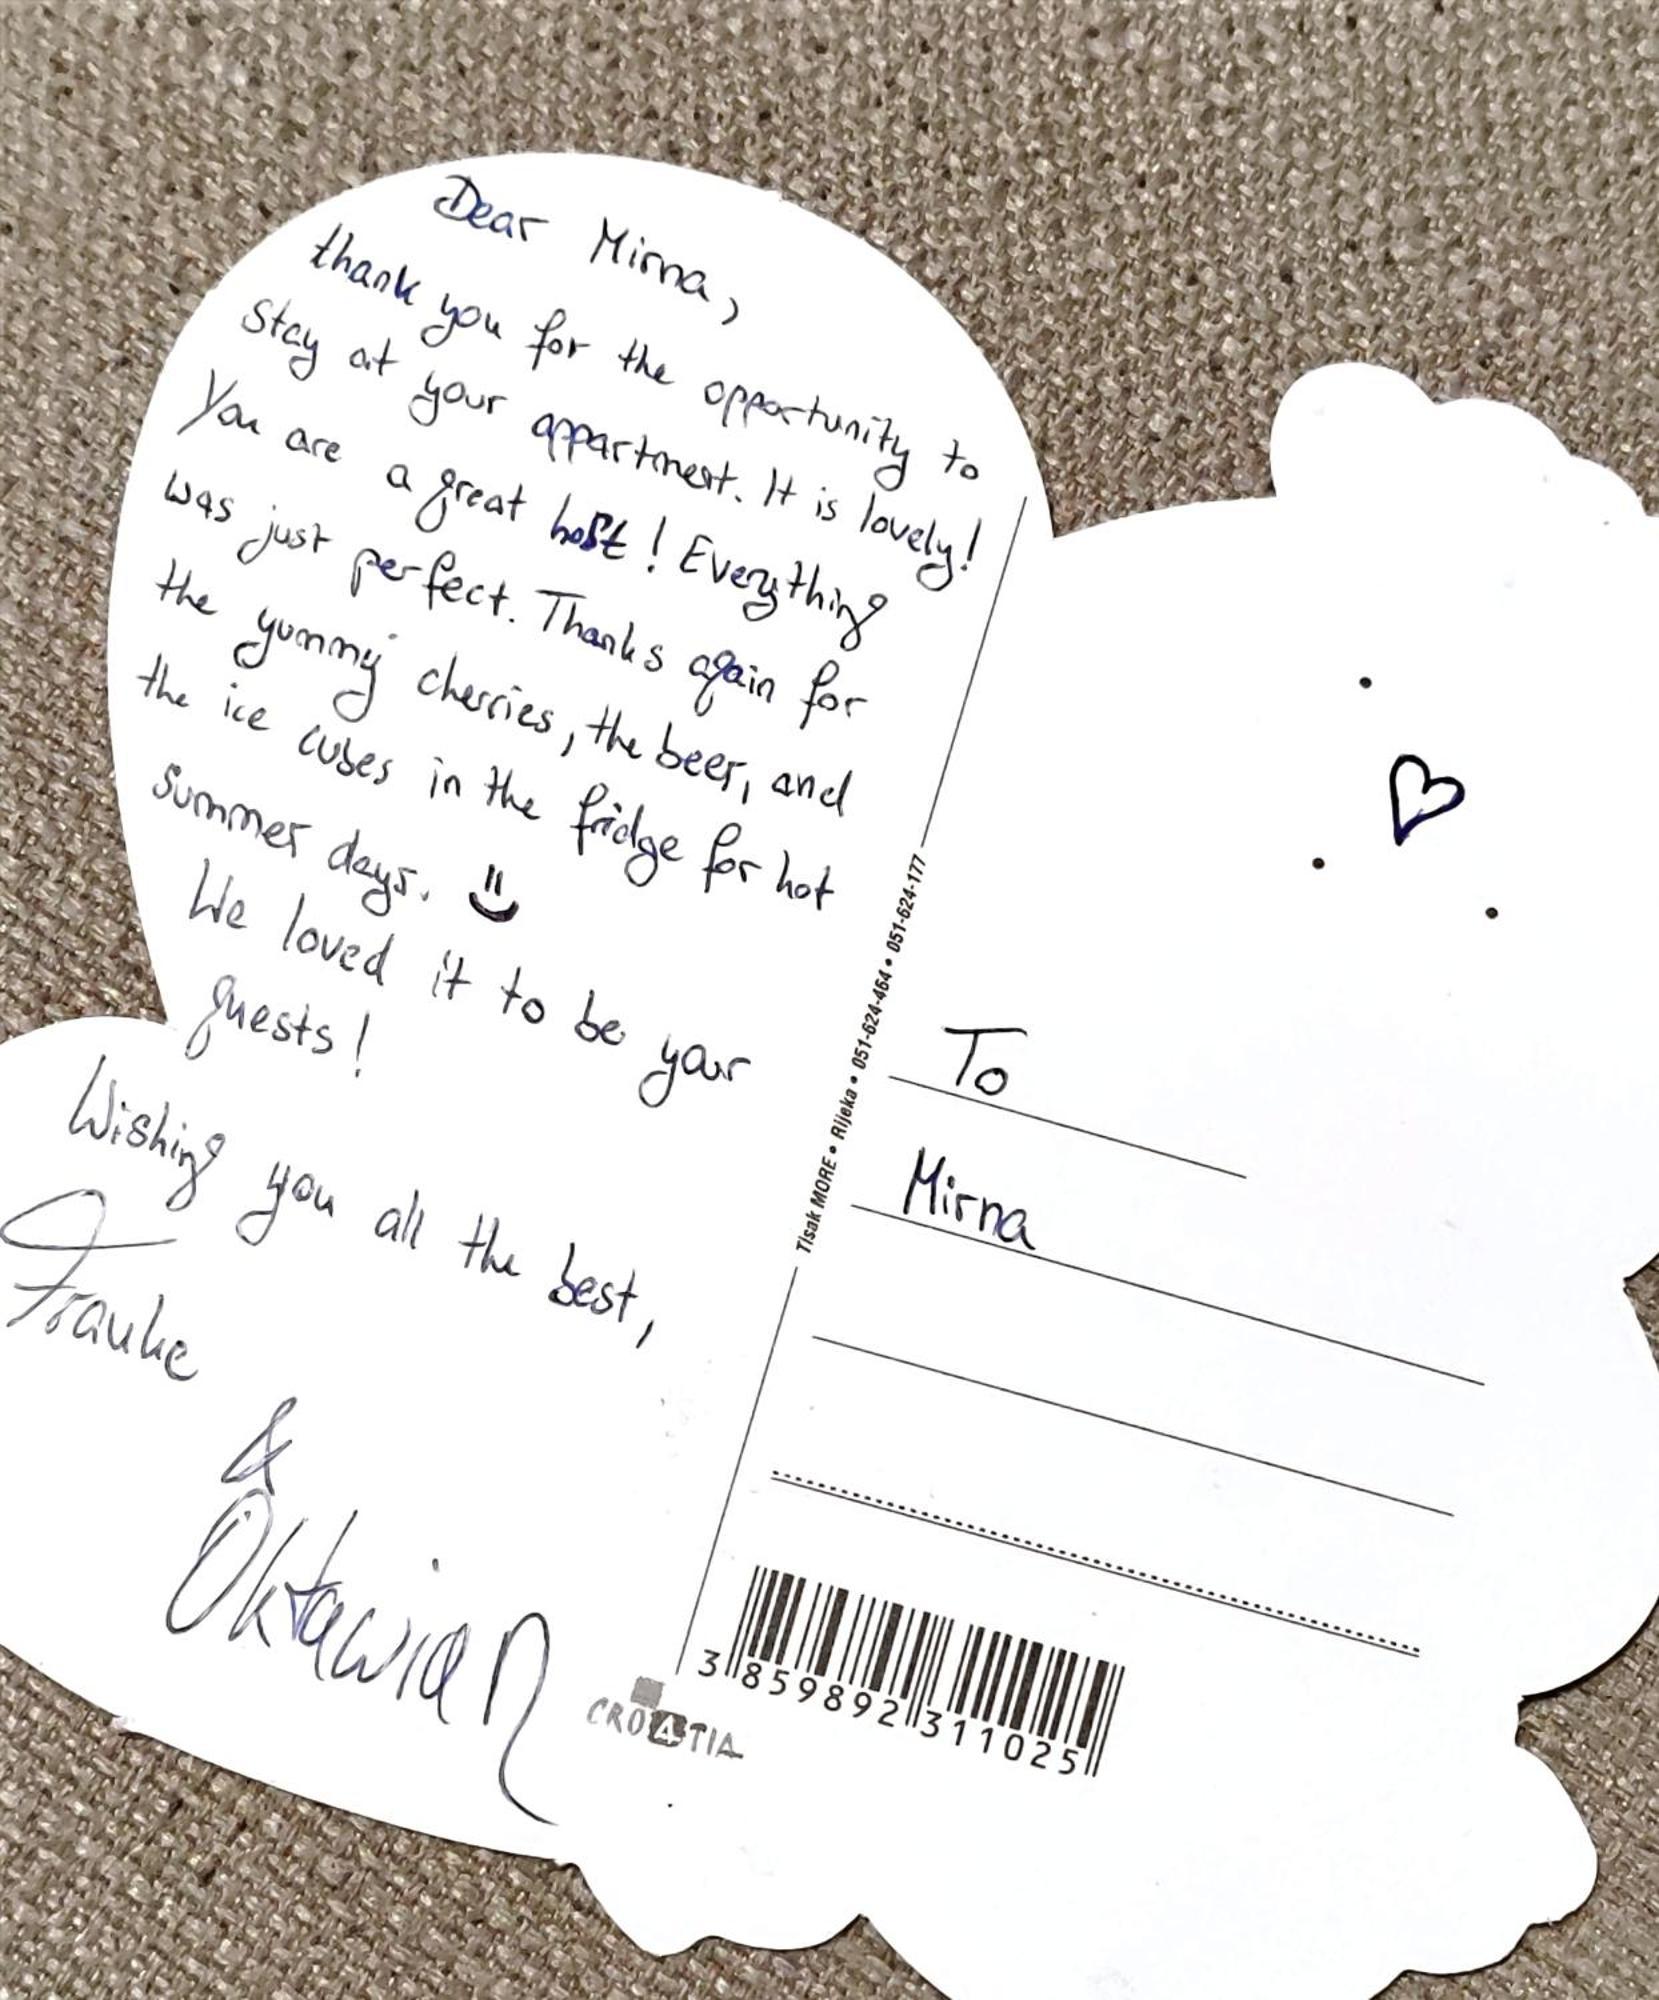 Dear Mirna,
thank you for the opportunity to
stay at your appartment. It is lovely!
You are a great host! Everything
was just perfect. Thanks again for
the yummy cherries, the beer, and
the ice cubes in the fridge for hot
summer days.
We loved it to be your
guests!
Wishing you all the best,
Frauke
&
Oktawian
Tisak MORE • Rijeka • 051-624-464 • 051-624-177
To
Mirna
3 859892 311025
CROATIA